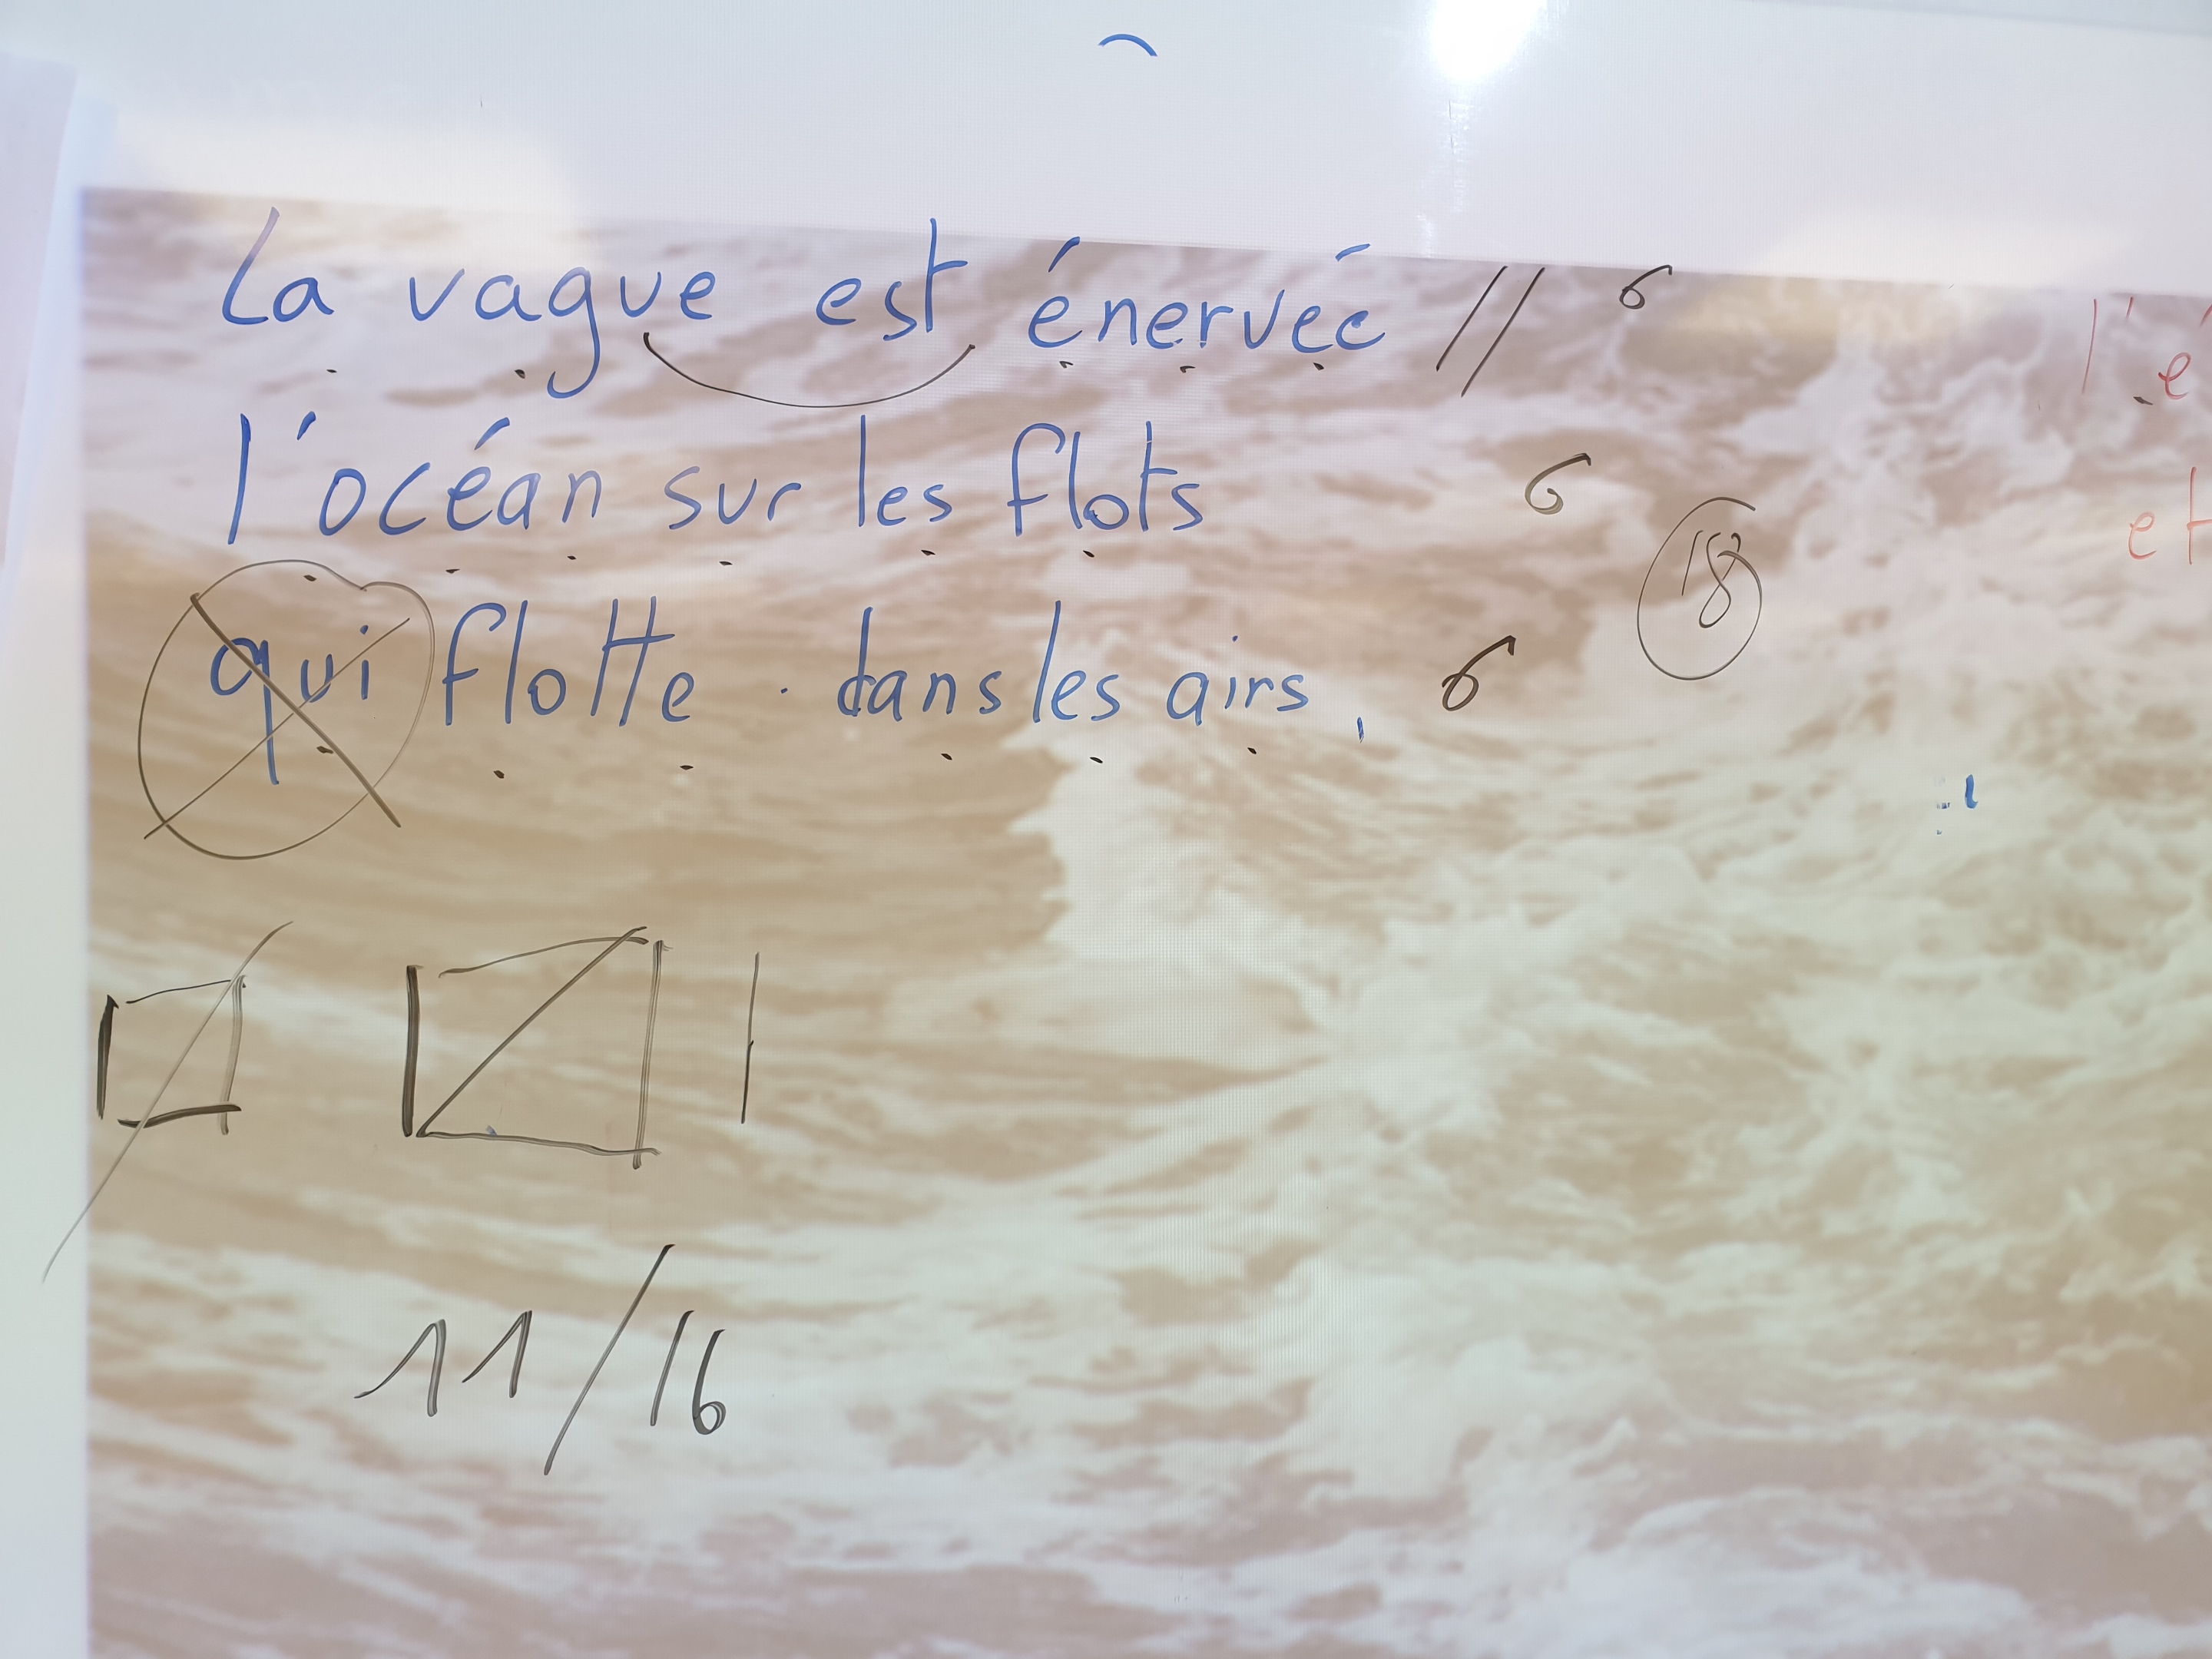 La vague est énervée // 6
l'é
l'océan sur les flots 6
18
et
qui flotte dans les airs, 6
11/16